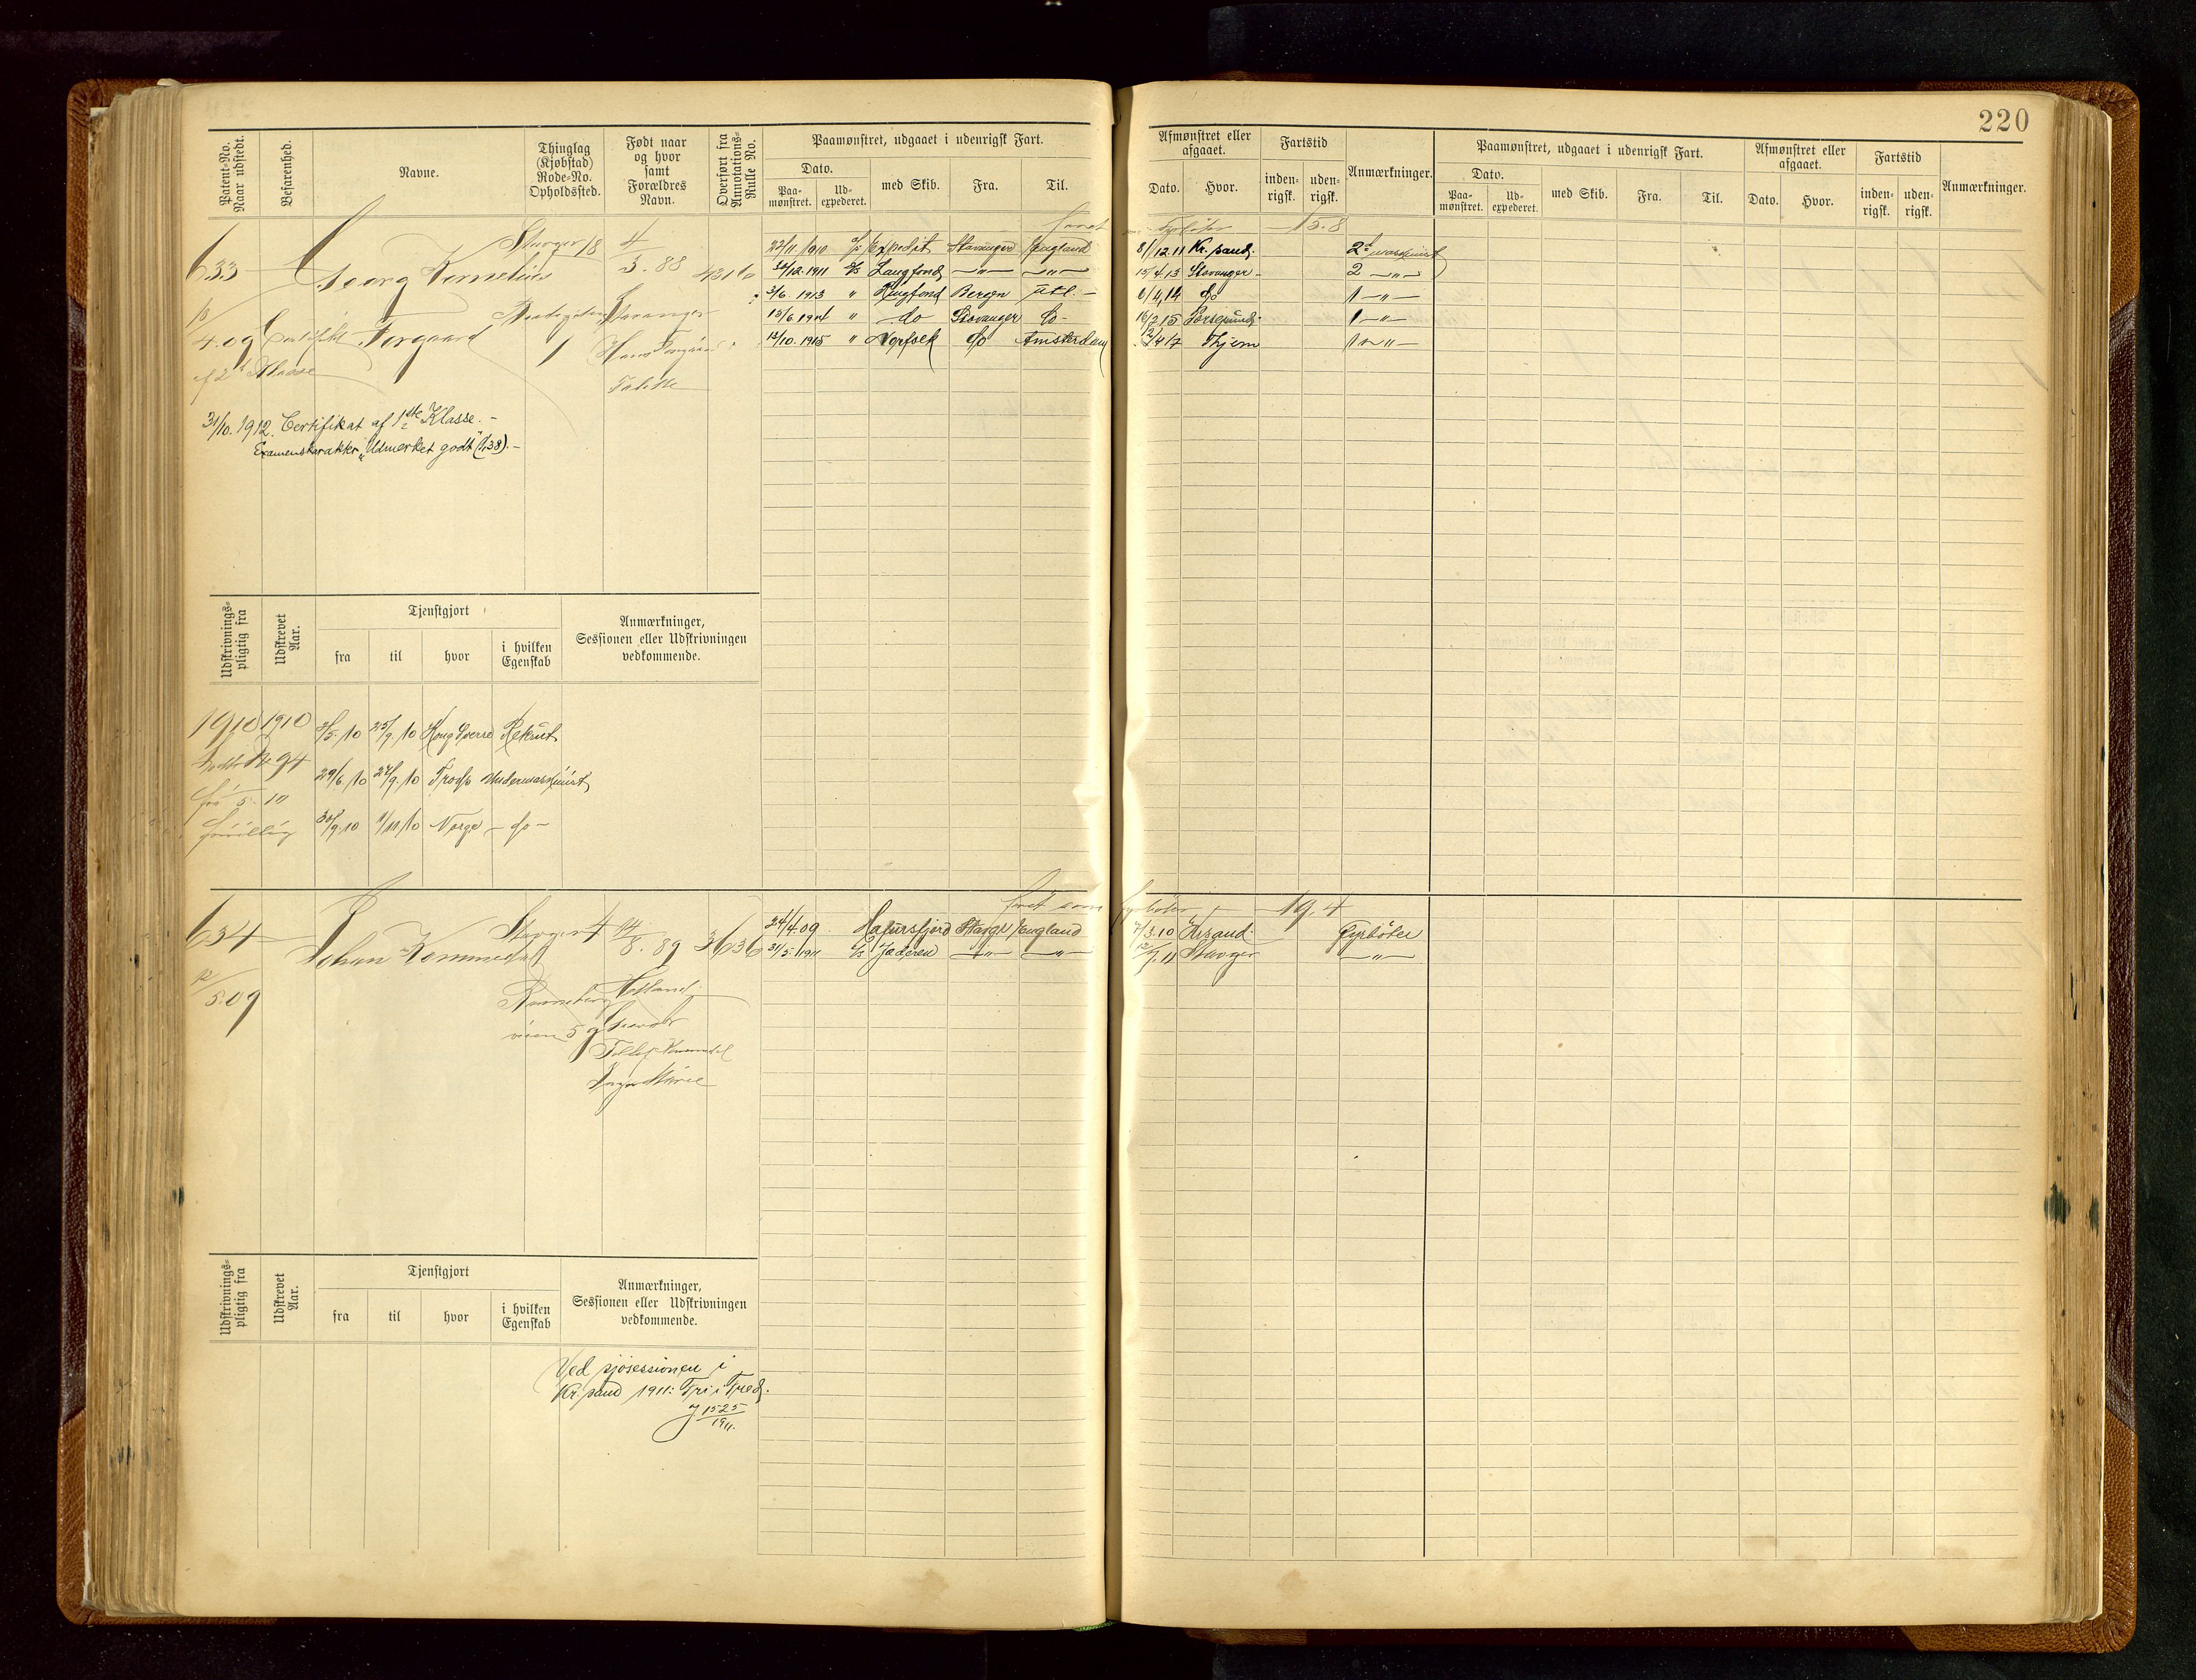 220
Patent-No. Naar udstedt.
Befarenhed.
Navne.
Thinglag (Kjøbstad) Rode-No. Opholdssted.
Født naar og hvor samt Forældres Navn.
Overført fra Annotations-Rulle No.
Paamønstret, udgaaet i udenrigsk Fart.
Dato.
Paa-mønstret.
Ud-expederet.
med Skib.
Fra.
Til.
Afmønstret eller afgaaet.
Dato.
Hvor.
Fartstid
inden-rigsk.
uden-rigsk.
Anmærkninger.
Paamønstret, udgaaet i udenrigsk Fart.
Dato.
Paa-mønstret.
Ud-expederet.
med Skib.
Fra.
Til.
Afmønstret eller afgaaet.
Dato.
Hvor.
Fartstid
inden-rigsk.
uden-rigsk.
Anmærkninger.
faret Fyrbøter 15.8
633 Georg Kornelius Torgaard
Stavger 18
4/3. 88
Stavanger
4.09
af 2 Klasse
22/11 1910 Stavanger England 8/12.11 Kr.sand. 2 maskinist
30/12.1911 D/S Langfond —"— —"— 15/4.13 Stavanger 2 —"—
3/6. 1913 " Ringfond Bergen utl. — 6/4,14 do 1 —"—
13/6.1914 " do Stavanger do — 16/2 15 1 —"—
12/10.1915 " Norfolk do Amsterdam 1 —"—
31/10.1912. Certifikat af 1ste Klasse. —
Examenskarakter „Udmerket godt" (1,38). —
Udskrivnings-pligtig fra
Udskrevet Aar.
Tjenstgjort
fra
til
hvor
i hvilken Egenskab
Anmærkninger, Sessionen eller Udskrivningen vedkommende.
1910 1910 3/5.10 25/9.10 Kong Sverre Rekrut
94 29/6.10 24/9.10 Undermaskinist
fra 5. 10
frivillig 30/9.10 11/11.10 Norge — do —
faret som fyrbøter 19.4
634 Johan Kommedal
Stavger 4
14/8. 89
3636
24/4.09 Hafursfjord Stavgr England 7/3.10 Arsand. Fyrbøter
31/5.1911 D/S Jæderen —"— —"— 12/7.11 Stavger —"—
12/5.09
veien 5
Hetland
Inger Marie
Udskrivnings-pligtig fra
Udskrevet Aar.
Tjenstgjort
fra
til
hvor
i hvilken Egenskab
Anmærkninger, Sessionen eller Udskrivningen vedkommende.
Ved sjøsessionen i
Kr.sand 1911: Fri i Fred.
J 1525/1911.